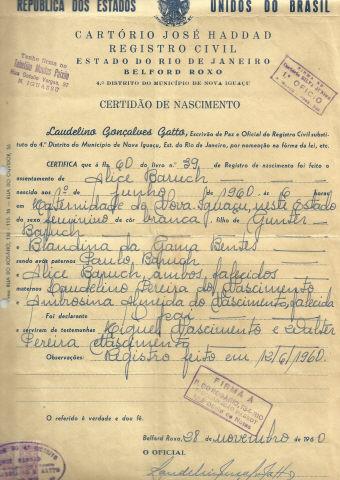 REPÚBLICA DOS ESTADOS UNIDOS DO BRASIL
CARTÓRIO JOSÉ HADDAD
REGISTRO CIVIL
ESTADO DO RIO DE JANEIRO
BELFORD ROXO
4.º DISTRITO DO MUNICÍPIO DE NOVA IGUAÇU
Tenho firma no
Rua Getulio Vargas, 97
N. IGUASSÚ
FIRMA
1.º OFICIO
CERTIDÃO DE NASCIMENTO
Laudelino Gonçalves Gatto, Escrivão de Paz e Oficial do Registro Civil substi-
tuto do 4.º Distrito do Município de Nova Iguaçu, Est. do Rio de Janeiro, por nomeação na fórma da lei, etc.
CERTIFICA que à fls. 60 do livro n.º 39 de Registro de nascimento foi feito o
assentamento de Alice Baruch
nascido aos 1º de junho de 1960 às 6 horas
em Maternidade de Nova Iguaçu, neste Estado
do sexo feminino de côr branca, filho de Gunter
Baruch
e Blandina da Gama Bentes
sendo avós paternos Paulo Baruch
e Alice Baruch, ambos falecidos
maternos Laudelino Pereira do Nascimento
e Ambrosina Almeida do Nascimento, falecida
Foi declarante O pai
e serviram de testemunhas Miguel Nascimento e Walter
Pereira Nascimento
Observações: Registro feito em 12/6/1960.
FIRMA À
O referido é verdade e dou fé.
Belford Roxo, 28 de novembro de 1960
O OFICIAL
Laudelino Gonçalves Gatto